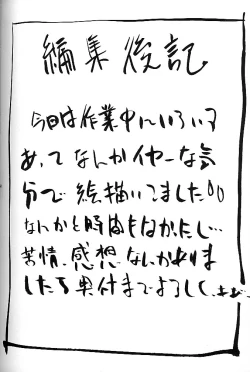 編集後記
今回は作業中にいろいろ
あってなんかイヤーな気
分で絵描いてました。。
なんかと時間もなかったし…
苦情、感想、なんかありま
したら奥付までよろしく。